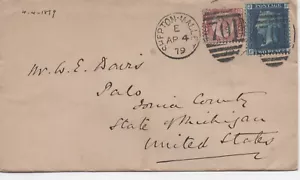 SHEPTON-MALLET
E
AP 4
79
701
Mr. W. E. Davis,
Palo
Ionia County
State of Michigan
United States